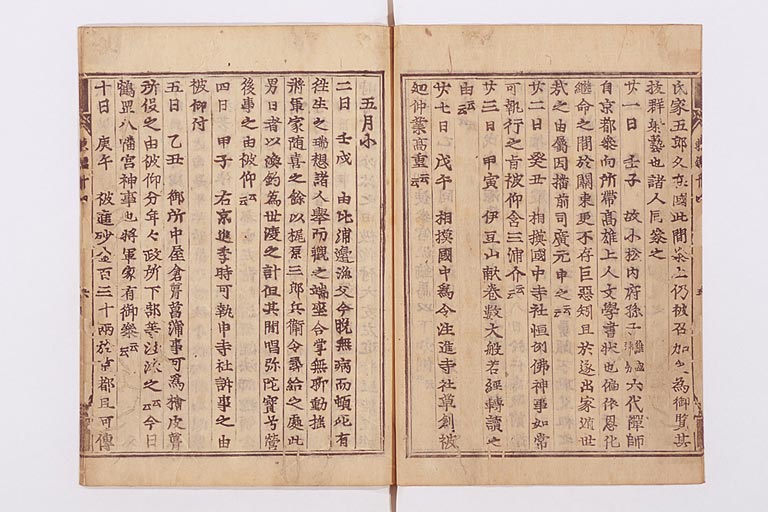 氏家五郎久在國此間参上仍被召加之為御覧其
抜群射藝也諸人同参之
廿一日 壬子 故小松内府孫子 六代禅師
自京都参向所帯高雄上人文學書状也偏依恩化
継命之間於關東更不存巨悪矧且於遂出家遁世
哉之由属因播前司廣元申之云云
廿二日 癸丑 相摸國中寺社恒例佛神事如常
可執行之旨被仰含三浦介云云
廿三日 甲寅 伊豆山献巻数大般若經轉讀之
由云云
廿七日 戊午 相摸國中為令注進寺社草創被
廻仲業高重云云
五月小
二日 壬戌 由比浦邊漁父今晩無病而頓死有
往生之瑞想諸人舉而觀之端坐合掌無聊動揺
将軍家随喜之餘以梶原三郎兵衛令尋給之處此
男日者以漁釣為世渡之計但其間唱弥陀寶号營
後事之由被仰云云
四日 甲子 右京進季時可執申寺社訴事之由
被仰付
五日 乙丑 御所中屋倉葺菖蒲事可為檜皮葺
所役之由被仰分年々政所下部等沙汰之云云今日
鶴罡八幡宮神事也将軍家有御参云云
十日 庚午 被進砂金百三十兩於京都且可傳